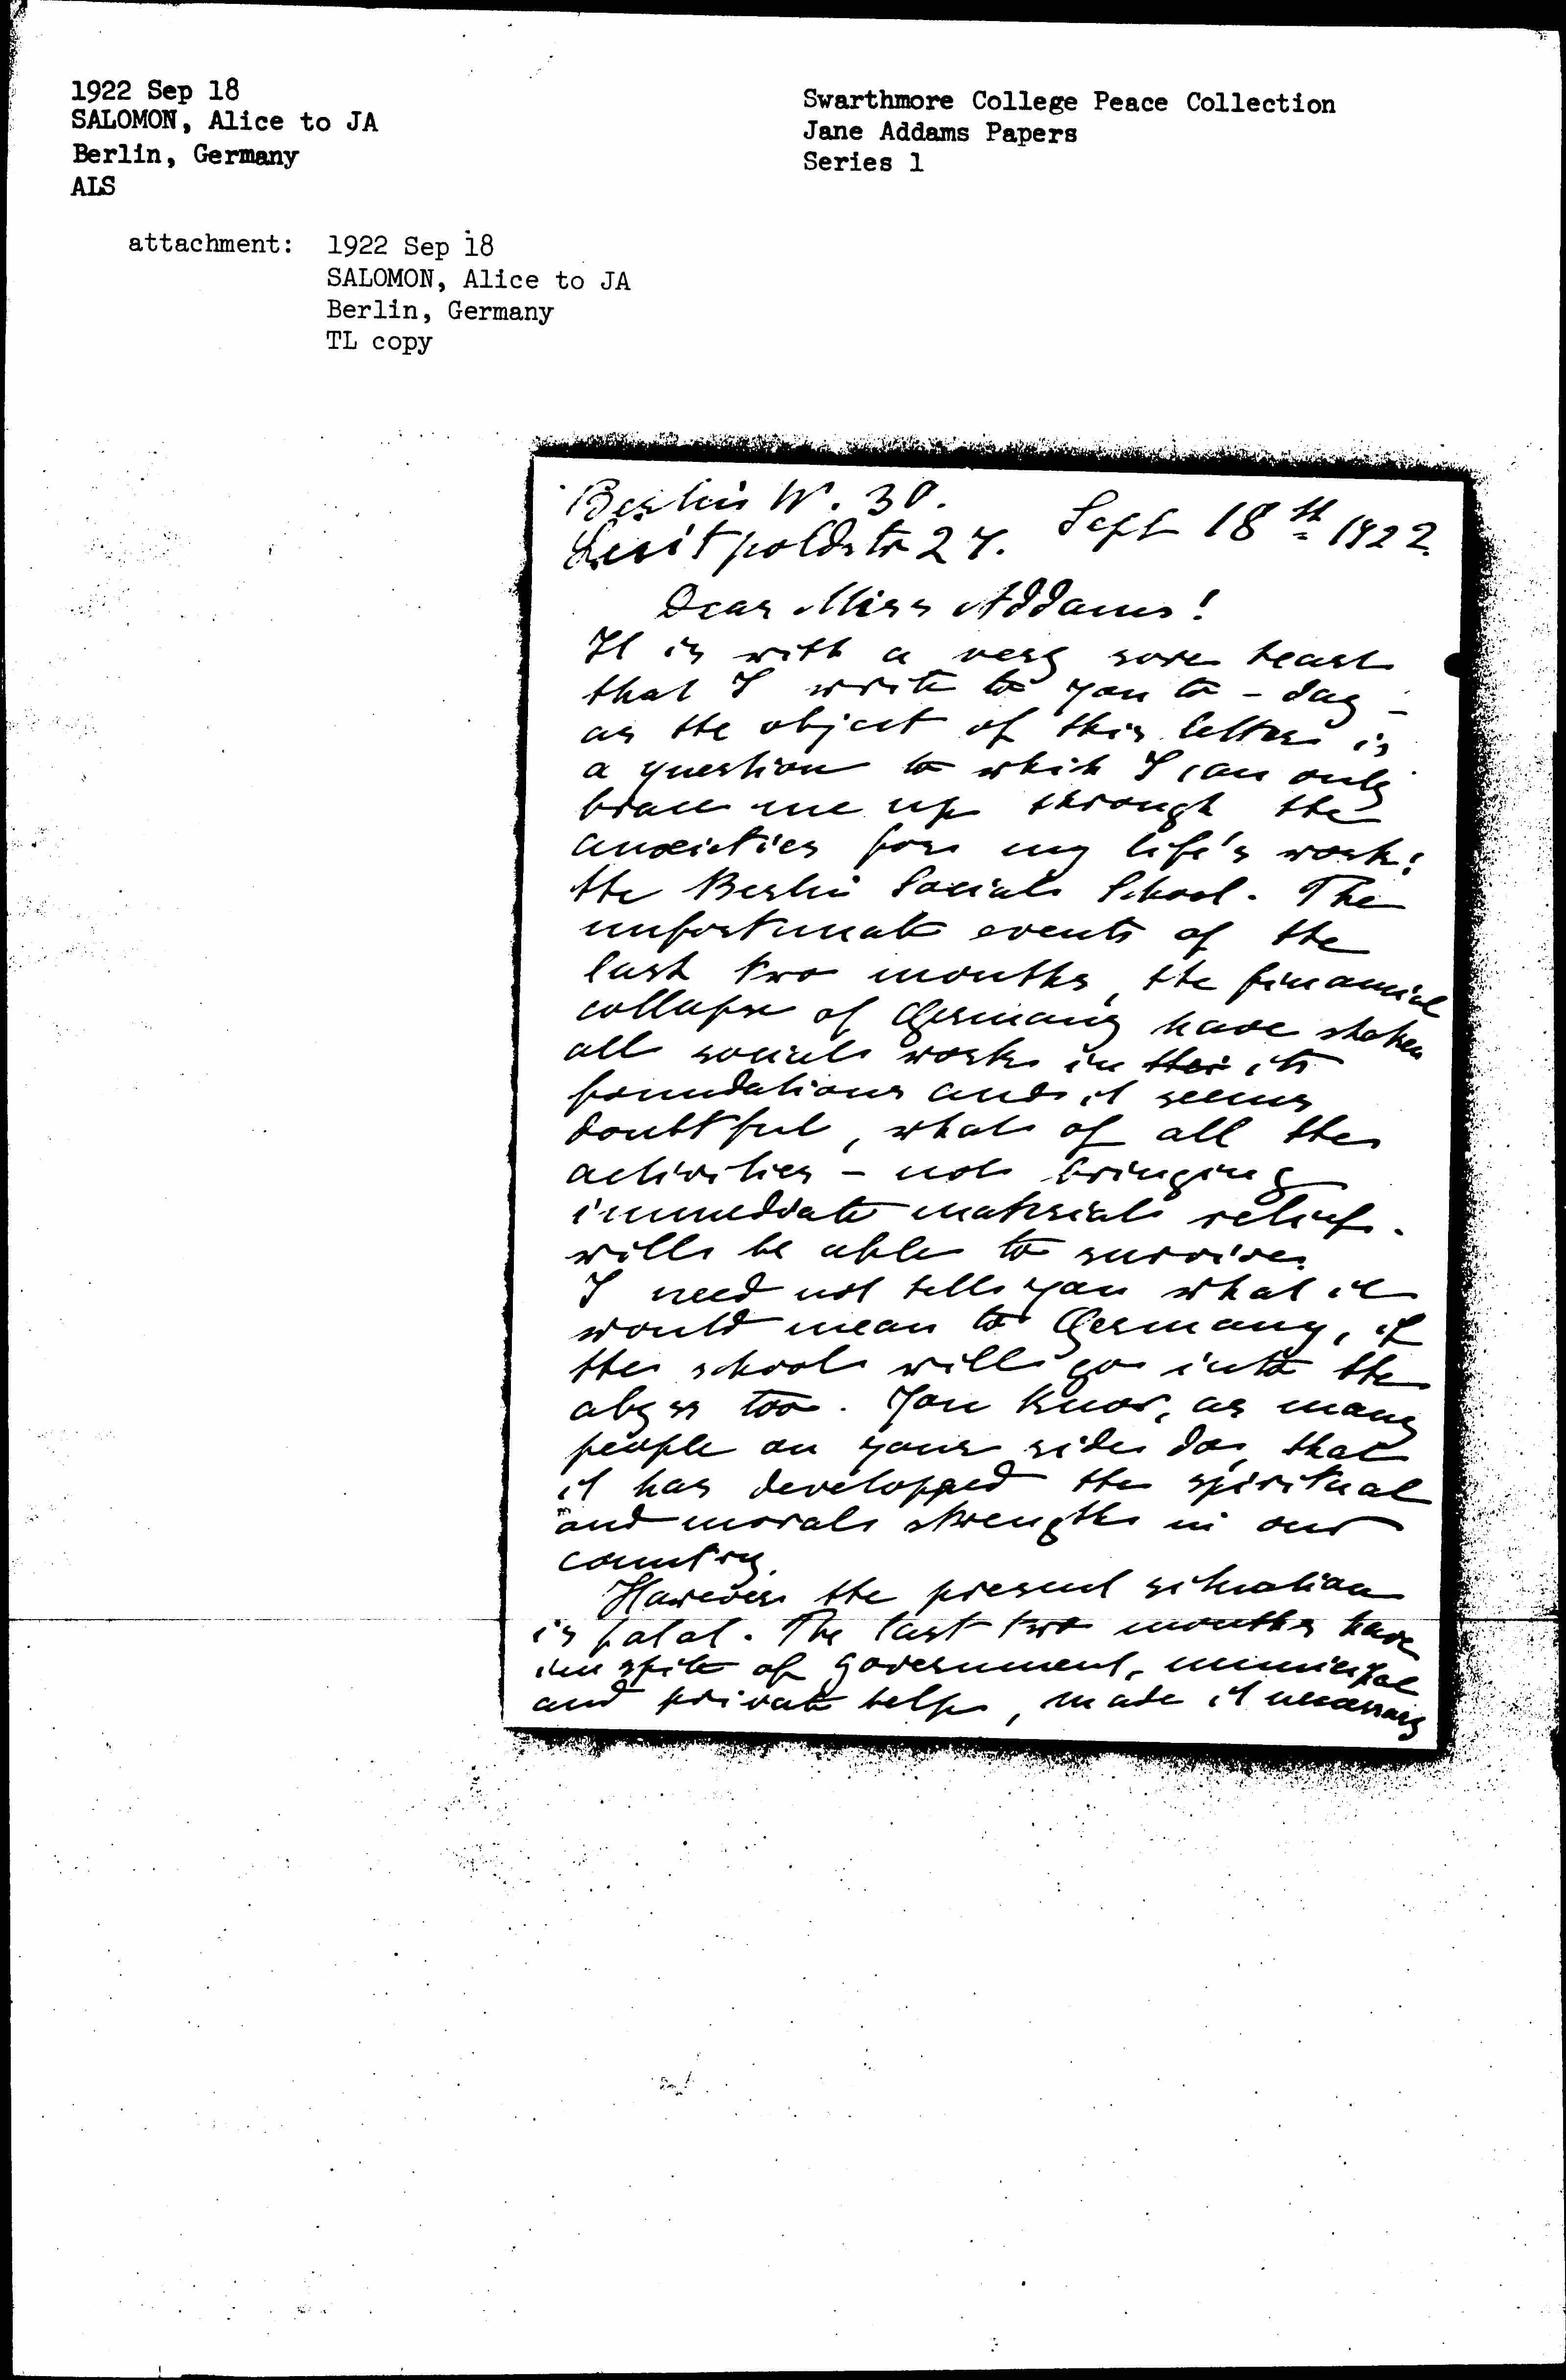 1922 Sep 18
SALOMON, Alice to JA
Berlin, Germany
ALS
Swarthmore College Peace Collection
Jane Addams Papers
Series 1
attachment: 1922 Sep 18
SALOMON, Alice to JA
Berlin, Germany
TL copy
Berlin W. 30.
Luitpoldstr 27. Sept 18th 1922.
Dear Miss Addams!
It is with a very sore heart
that I write to you to-day -
as the object of this letter is
a question to which I can only
brace me up through the
anxieties for my life's work:
the Berlin Social School. The
unfortunate events of the
last two months, the financial
collapse of Germany have shaken
all social work in its
foundations and it seems
doubtful, what of all the
activities - not bringing
immediate material relief -
will be able to survive.
I need not tell you what it
would mean to Germany, if
the school will go into the
abyss too. You know, as many
people on your side do, that
it has developped the spiritual
and moral strength in our
country.
However the present situation
is fatal. The last two months have
inn spite of government, municipal
and private help, made it necessary